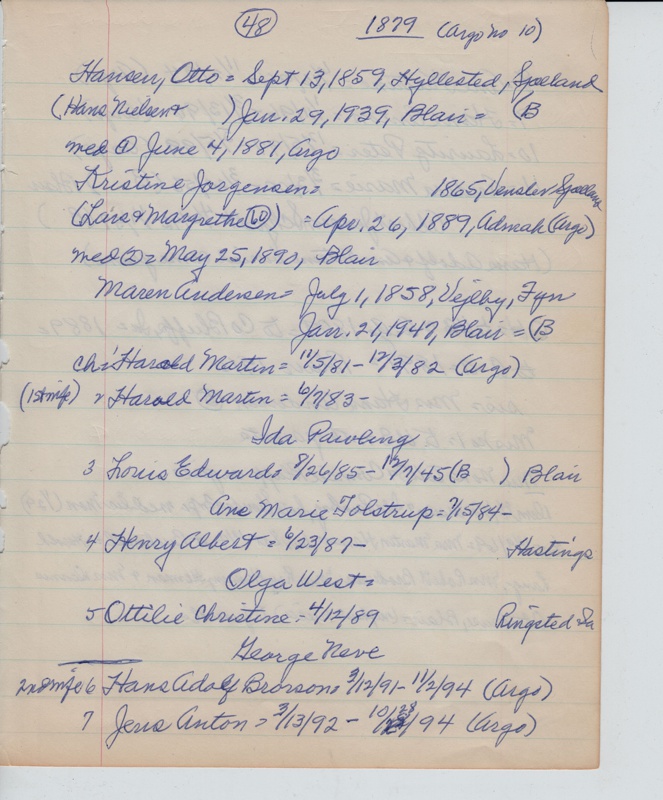 (48) 1879 (Argo no 10)
Hansen, Otto = Sept 13, 1859, Hyllested, Sjælland
(Hans Nielsen + ) Jan. 29, 1939, Blair = (B
med ① June 4, 1881, Argo
Kristine Jorgensen = 1865, Venslev Sjælland
(Lars + Margrethe (60)) = Apr. 26, 1889, Admah (Argo)
med ② = May 25, 1890, Blair
Maren Andersen = July 1, 1858, Vejlby, Fyn
Jan. 21, 1947, Blair = (B
ch: 1 Harold Martin = 11/5/81 - 12/3/82 (Argo)
(1st wife) 2 Harold Martin = 6/7/83 -
Ida Pawling
3 Louis Edward = 8/26/85 - /7/45 (B ) Blair
Ane Marie Tolstrup = 7/15/84 -
4 Henry Albert = 6/23/87 - Hastings
Olga West =
5 Ottilie Christine = 4/12/89 Ringsted Ia
George Neve
2nd wife 6 Hans Adolf Brorson = 3/12/91 - 11/2/94 (Argo)
7 Jens Anton = 3/13/92 - 10/28/94 (Argo)